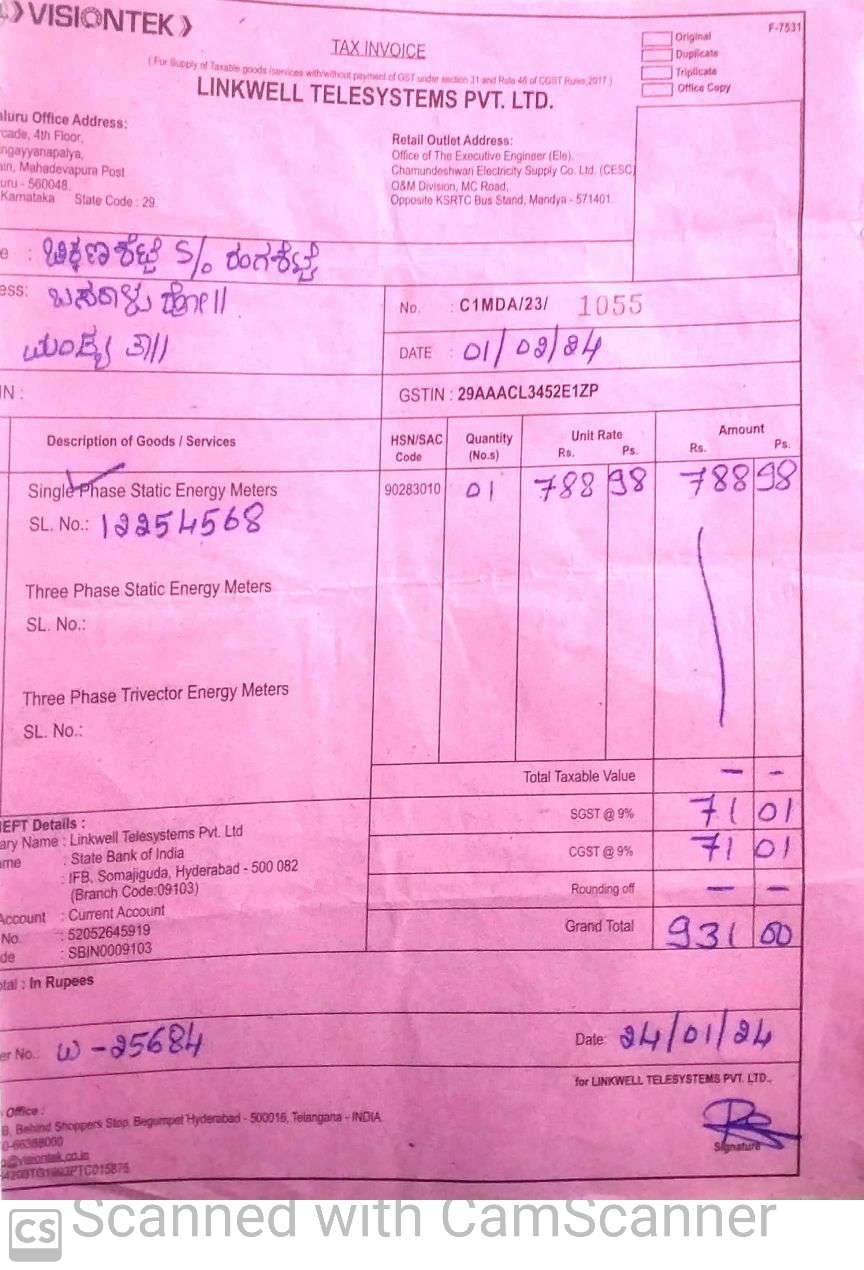 VISIONTEK
F-7531
TAX INVOICE
Original
Duplicate
Triplicate
Office Copy
(For Supply of Taxable goods /services with/without payment of GST under section 31 and Rule 46 of CGST Rules,2017)
LINKWELL TELESYSTEMS PVT. LTD.
aluru Office Address:
cade, 4th Floor,
ngayyanapalya,
ain, Mahadevapura Post
uru - 560048.
Karnataka State Code : 29
Retail Outlet Address:
Office of The Executive Engineer (Ele).
Chamundeshwari Electricity Supply Co. Ltd. (CESC)
O&M Division, MC Road,
Opposite KSRTC Bus Stand, Mandya - 571401.
e : ಚಿಕ್ಕಣಶೆಟ್ಟಿ S/o ರಂಗಶೆಟ್ಟಿ
ess: ಬಸರಾಳು ಹೋ||
ಮಂಡ್ಯ ತಾ||
No. : C1MDA/23/ 1055
DATE : 01/02/24
IN :
GSTIN : 29AAACL3452E1ZP
Description of Goods / Services HSN/SAC Code Quantity (No.s) Unit Rate Rs. Ps. Amount Rs. Ps.
Single Phase Static Energy Meters 90283010 01 788 98 788 98
SL. No.: 12254568
Three Phase Static Energy Meters
SL. No.:
Three Phase Trivector Energy Meters
SL. No.:
Total Taxable Value - -
SGST @ 9% 71 01
CGST @ 9% 71 01
Rounding off - -
Grand Total 931 00
EPT Details :
ary Name : Linkwell Telesystems Pvt. Ltd
me : State Bank of India
: IFB, Somajiguda, Hyderabad - 500 082
(Branch Code:09103)
Account : Current Account
No. : 52052645919
de : SBIN0009103
otal : In Rupees
er No.: W - 25684
Date: 24/01/24
for LINKWELL TELESYSTEMS PVT. LTD.,
Office :
B, Behind Shoppers Stop, Begumpet Hyderabad - 500016, Telangana - INDIA
0-66388000
@visiontek.co.in
Signature
CS Scanned with CamScanner